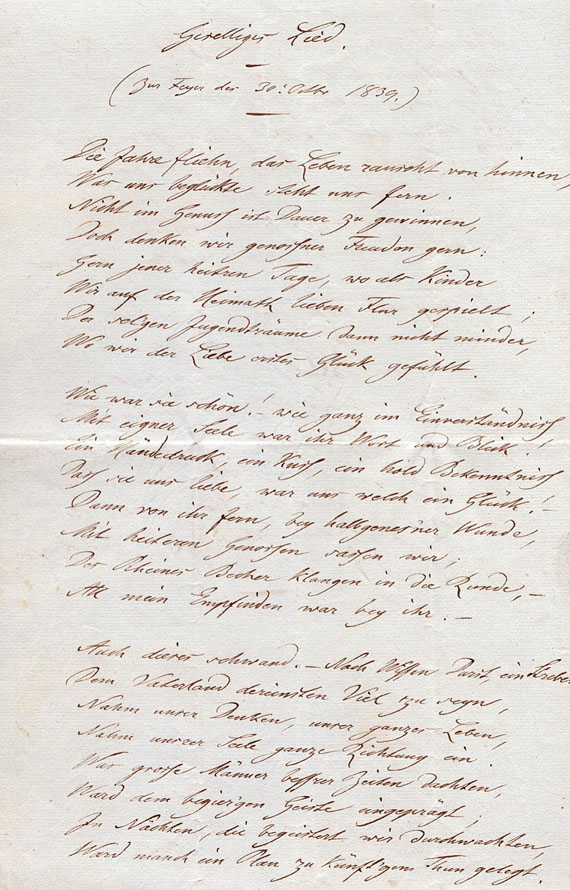 Geselliges Lied.
(Zur Feyer des 30t Octbr 1839.)
Die Jahre fliehn, das Leben rauscht von hinnen,
Was uns beglükte steht uns fern.
Nicht im Genuss ist Dauer zu gewinnen,
Doch denken wir genossner Freuden gern:
Gern jener heitren Tage, wo als Kinder
Wir auf der Heimath lieben Flur gespielt;
Der sel'gen Jugendträume dann nicht minder,
Wo wir der Liebe erstes Glück gefühlt.
Wie war sie schön! – wie ganz im Einverständniss
Mit eigner Seele war ihr Wort und Blick!
Ein Händedruck, ein Kuss, ein hold Bekenntniss
Dass sie uns liebe, war uns welch ein Glück! –
Dann von ihr fern, bey halbgenes'ner Wunde,
Mit heiteren Genossen sassen wir;
Des Rheines Becher klangen in die Runde, –
All mein Empfinden war bey ihr. –
Auch dieses schwand. – Nach Wissen Durst, ein
Dem Vaterland dereinsten Viel zu seyn,
Nahm unser Denken, unser ganzes Leben,
Nahm unsrer Seele ganze Richtung ein.
Was grosse Männer bessrer Zeiten dachten,
Ward dem begier'gen Geiste eingeprägt;
In Nächten, die begeistert wir durchwachten,
Ward manch ein Plan zu künft'gem Thun gelegt.